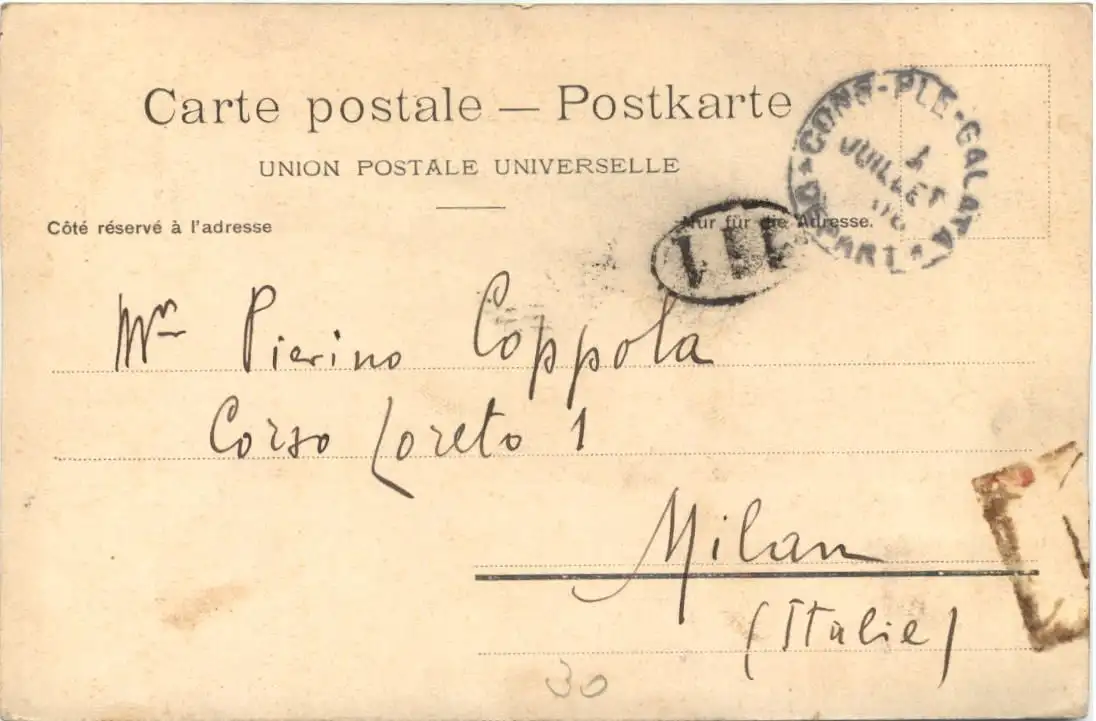 Carte postale — Postkarte
UNION POSTALE UNIVERSELLE
Côté réservé à l'adresse
Nur für die Adresse.
CONS-PLE-GALATA
JUILLET
DEPART
Mr Pierino Coppola
Corso Loreto 1
Milan
(Italie)
30